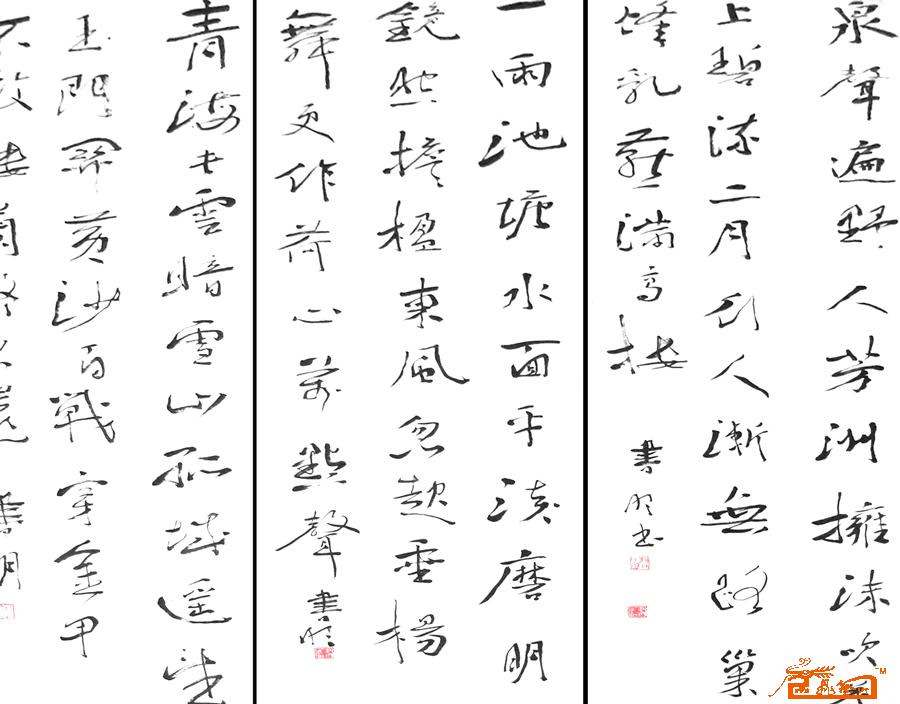 泉聲遍野人芳洲擁沫吹
上碧流二月行人漸無路巢
蜂乳燕滿高樓
書明書
一雨池塘水面平淡磨明
鏡照檐楹東風忽起垂楊
舞更作荷心萬點聲
書明
青海長雲暗雪山孤城遥望
玉門關黄沙百戰穿金甲
不破樓蘭終不還
書明